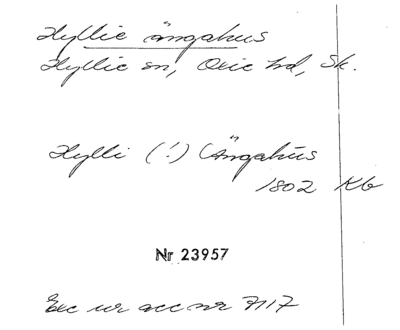 Hyllie ängahus
Hyllie sn, Oxie hd, Sk.
Hylli (!) Ängahus
1802 Kb
Nr 23957
Exc ur acc nr 7117